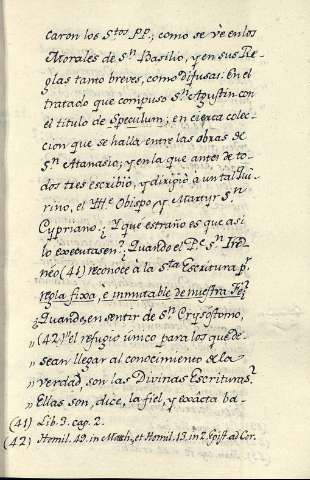 caron los S.tos P.P.; como se vè en los
Morales de S.n Basilio, y en sus Re-
glas tanto breves, como Difusas. En el
tratado que compuso S.n Agustin con
el titulo de Speculum; en cierta colec-
cion que se halla entre las obras de
S.n Atanasio; y en la que antes de to-
dos tres escribió, y dirigió a un tal Qui-
rino, el Yll.e Obispo y Martyr S.n
Cypriano. ¿Y què estraño es que asi
lo executasen? ¿Quando el P.e S.n Ire-
nèo (41) reconoce à la S.ta Escritura p.r
regla fixa, è inmutable de nuestra Fé?
¿Quando, en sentir de S.n Crysostomo,
„(42) el refugio unico para los que de-
„sean llegar al conocimiento de la
„verdad, son las Divinas Escrituras?
„Ellas son, dice, la fiel, y exâcta ba-
(41) Lib. 3. cap. 2.
(42) Homil. 49. in Math. et Homil. 13. in 2. Epist. ad Cor.